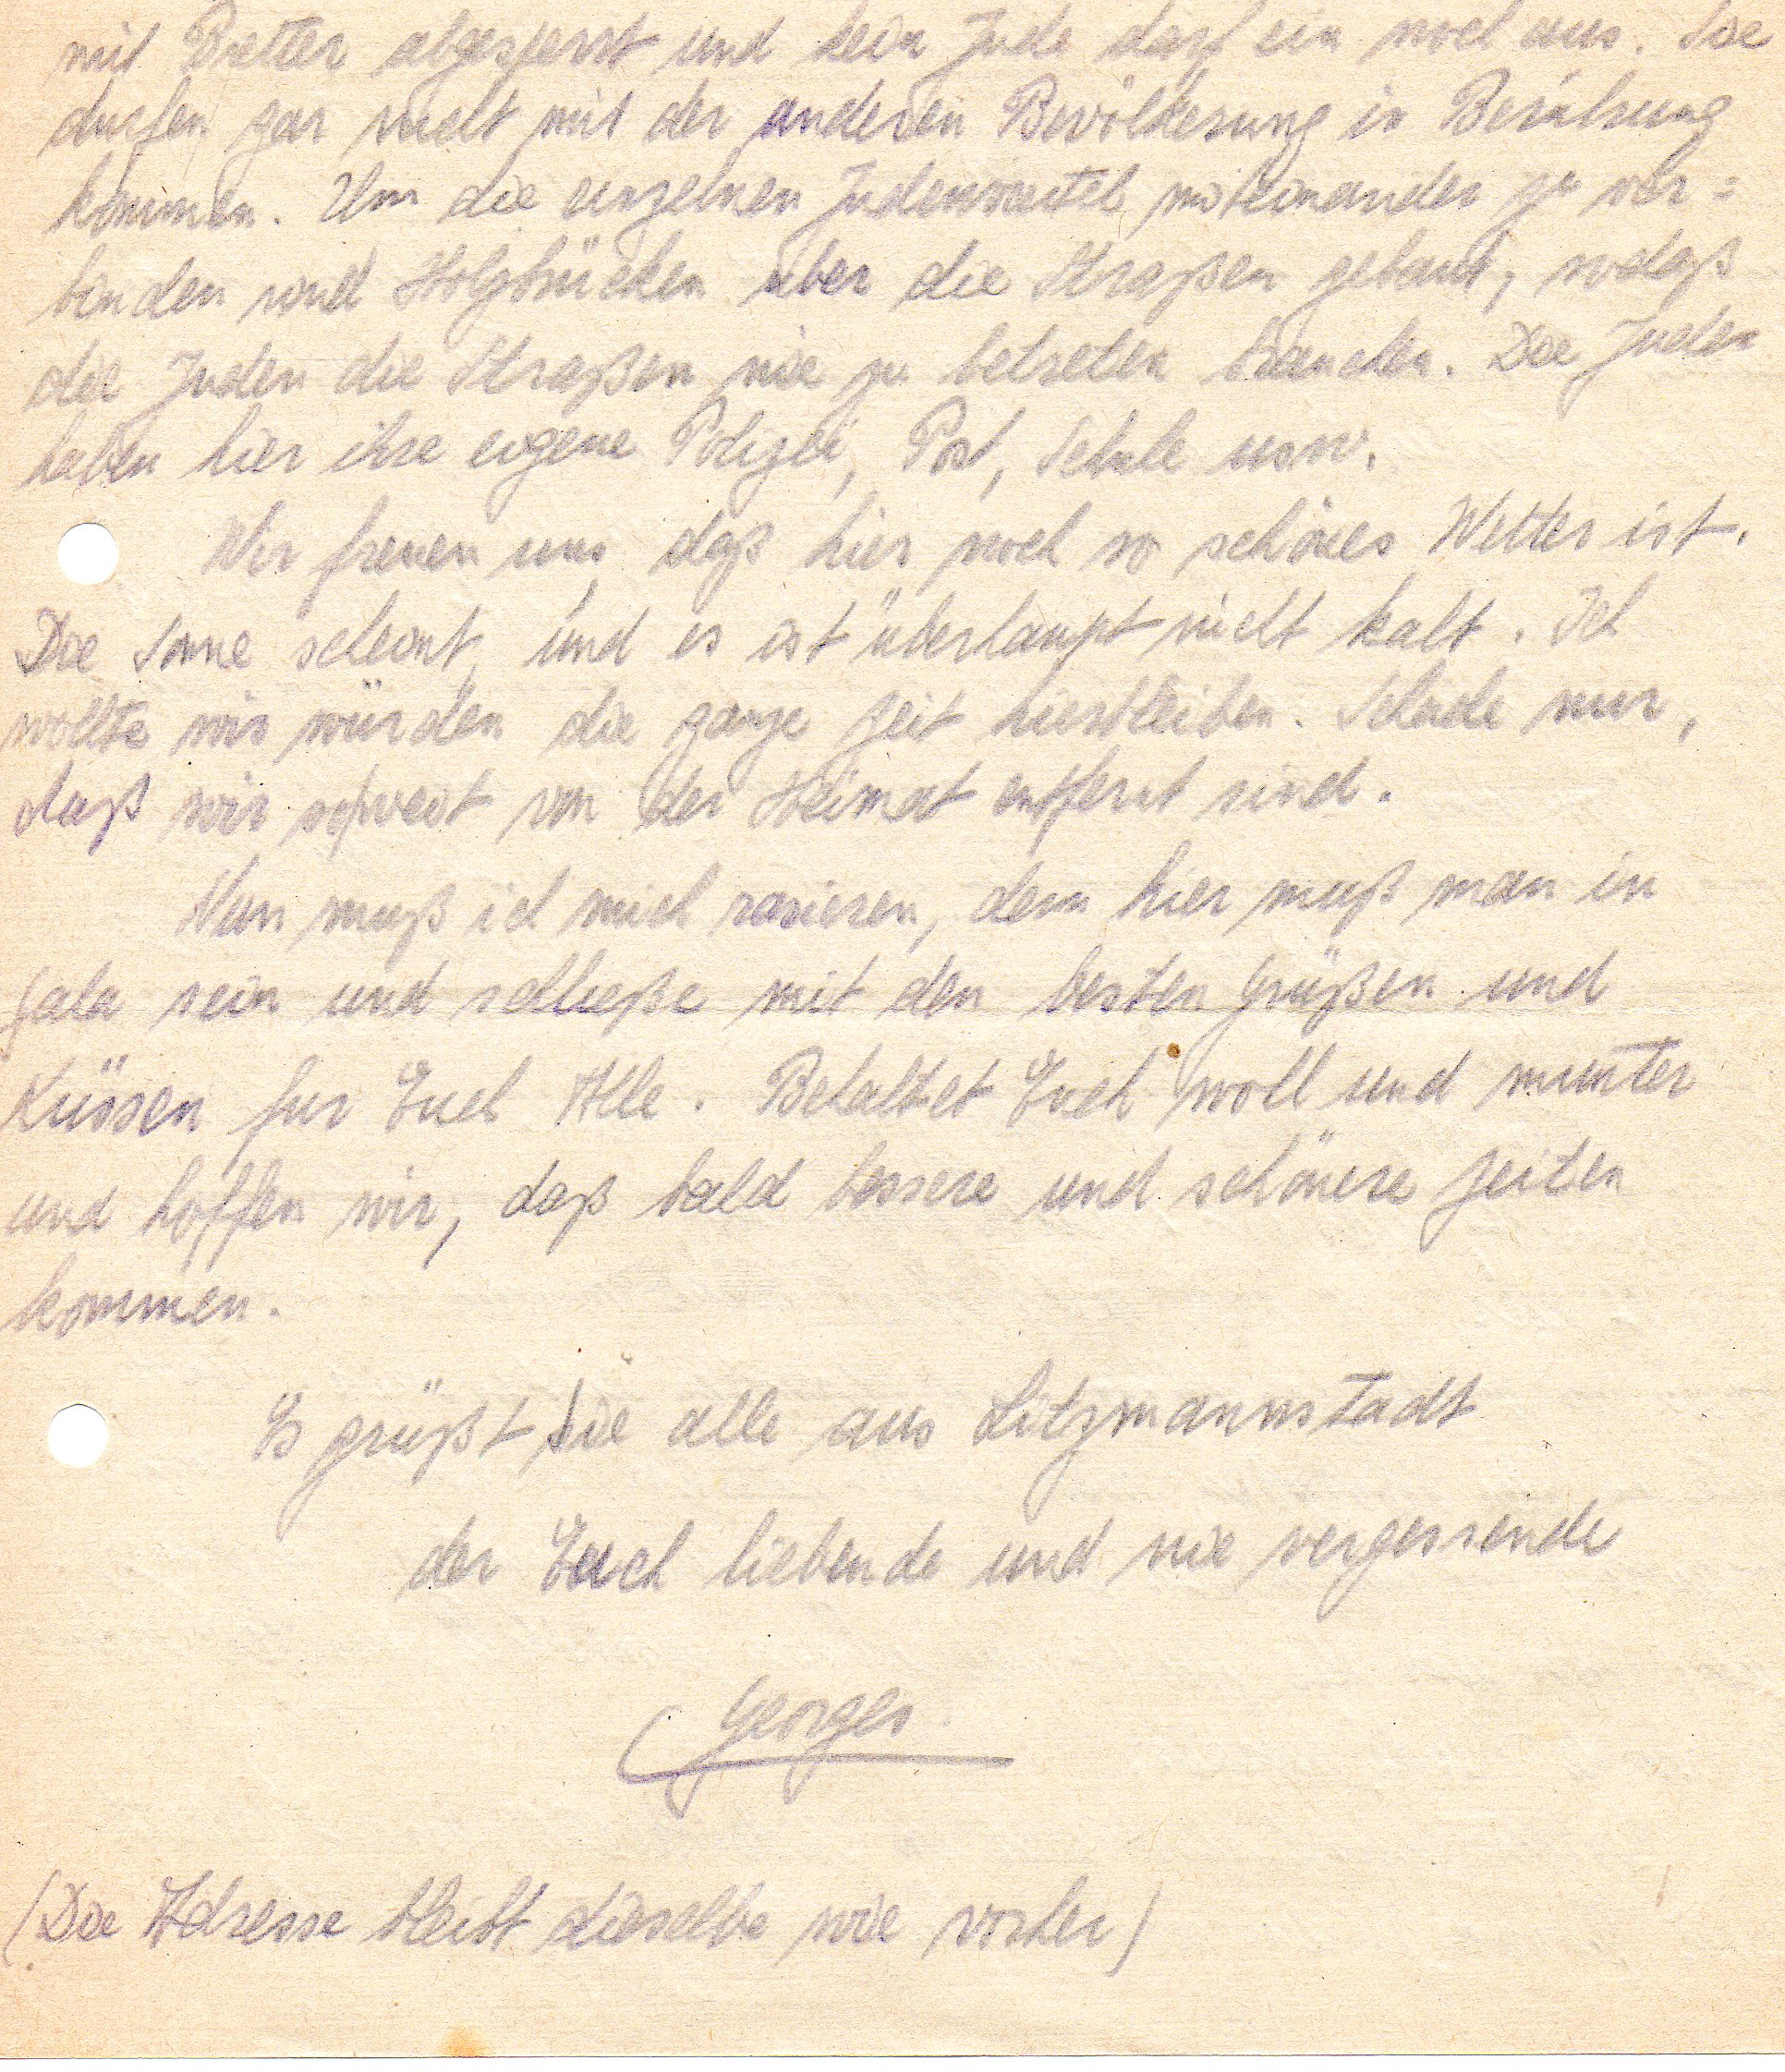 mit Bretter abgesperrt und kein Jude darf ein noch aus. Sie
durfen gar nicht mit der anderen Bevölkerung in Berührung
kommen. Um die einzelnen Judenviertel miteinander zu ver=
binden sind Holzbrücken über die Straßen gebaut, sodaß
die Juden die Straßen nie zu betreten brauchen. Die Juden
haben hier ihre eigene Polizei, Post, Schule usw.
Wir freuen uns, daß hier noch so schönes Wetter ist.
Die Sonne scheint, und es ist überhaupt nicht kalt. Ich
wollte wir würden die ganze Zeit hierbleiben. Schade nur,
daß wir so weit von der Heimat entfernt sind.
Nun muß ich mich rasieren, denn hier muß man in
Gala sein und schließe mit den besten Grüßen und
Küssen fur Euch Alle. Behaltet Euch wohl und munter
und hoffen wir, daß bald bessere und schönere Zeiten
kommen.
Es grüßt Sie alle aus Litzmannstadt
der Euch liebende und nie vergessende
Georges.
(Die Adresse bleibt dieselbe wie vorher)